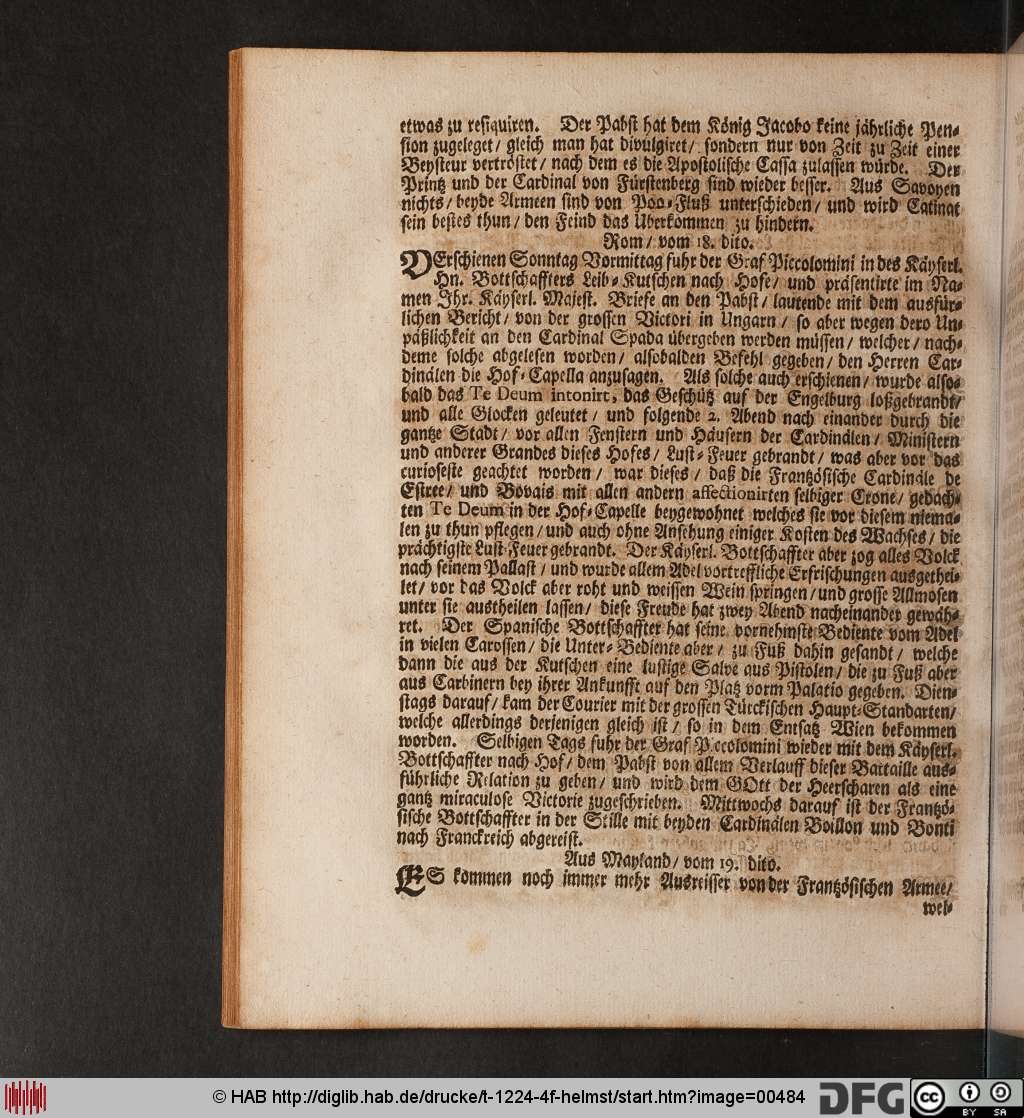 etwas zu resiquiren. Der Pabst hat dem König Jacobo keine jährliche Pen-
sion zugeleget/ gleich man hat divulgiret/ sondern nur von Zeit zu Zeit einer
Beysteur vertröstet/ nach dem es die Apostolische Cassa zulassen würde. Der
Printz und der Cardinal von Fürstenberg sind wieder besser. Aus Savoyen
nichts/ beyde Armeen sind von Poo-Fluß unterschieden/ und wird Catinat
sein bestes thun/ den Feind das Uberkommen zu hindern.
Rom/ vom 18. dito.
VErschienen Sonntag Vormittag fuhr der Graf Piccolomini in des Käyserl.
Hn. Bottschaffters Leib-Kutschen nach Hofe/ und präsentirte im Na-
men Ihr. Käyserl. Majest. Briefe an den Pabst/ lautende mit dem ausfür-
lichen Bericht/ von der grossen Victori in Ungarn/ so aber wegen dero Un-
päßlichkeit an den Cardinal Spada übergeben werden müssen/ welcher/ nach-
deme solche abgelesen worden/ alsobalden Befehl gegeben/ den Herren Car-
dinälen die Hof-Capella anzusagen. Als solche auch erschienen/ wurde also-
bald das Te Deum intonirt, das Geschütz auf der Engelburg loßgebrandt/
und alle Glocken geleutet/ und folgende 2. Abend nach einander durch die
gantze Stadt/ vor allen Fenstern und Häusern der Cardinälen/ Ministern
und anderer Grandes dieses Hofes/ Lust-Feuer gebrandt/ was aber vor das
curioseste geachtet worden/ war dieses/ daß die Frantzösische Cardinäle de
Estree/ und Bovais mit allen andern affectionirten selbiger Crone/ gedach-
ten Te Deum in der Hof-Capelle beygewohnet welches sie vor diesem niema-
len zu thun pflegen/ und auch ohne Ansehung einiger Kosten des Wachses/ die
prächtigste Lust-Feuer gebrandt. Der Käyserl. Bottschaffter aber zog alles Volck
nach seinem Pallast/ und wurde allem Adel vortreffliche Erfrischungen ausgethei-
let/ vor das Volck aber roht und weissen Wein springen/ und grosse Allmosen
unter sie austheilen lassen/ diese Freude hat zwey Abend nacheinander gewäh-
ret. Der Spanische Bottschaffter hat seine vornehmste Bediente vom Adel
in vielen Carossen/ die Unter-Bediente aber/ zu Fuß dahin gesandt/ welche
dann die aus der Kutschen eine lustige Salve aus Pistolen/ die zu Fuß aber
aus Carbinern bey ihrer Ankunfft auf den Platz vorm Palatio gegeben. Dien-
stags darauf/ kam der Courier mit der grossen Türckischen Haupt-Standarten/
welche allerdings derjenigen gleich ist/ so in dem Entsatz Wien bekommen
worden. Selbigen Tags fuhr der Graf Piccolomini wieder mit dem Käyserl.
Bottschaffter nach Hof/ dem Pabst von allem Verlauff dieser Battaille aus-
führliche Relation zu geben/ und wird dem GOtt der Heerscharen als eine
gantz miraculose Victorie zugeschrieben. Mittwochs darauf ist der Frantzö-
sische Bottschaffter in der Stille mit beyden Cardinälen Boillon und Bonti
nach Franckreich abgereist.
Aus Mayland/ vom 19. dito.
ES kommen noch immer mehr Ausreisser von der Frantzösischen Armee/
wel-
© HAB http://diglib.hab.de/drucke/t-1224-4f-helmst/start.htm?image=00484
DFG
cc BY SA